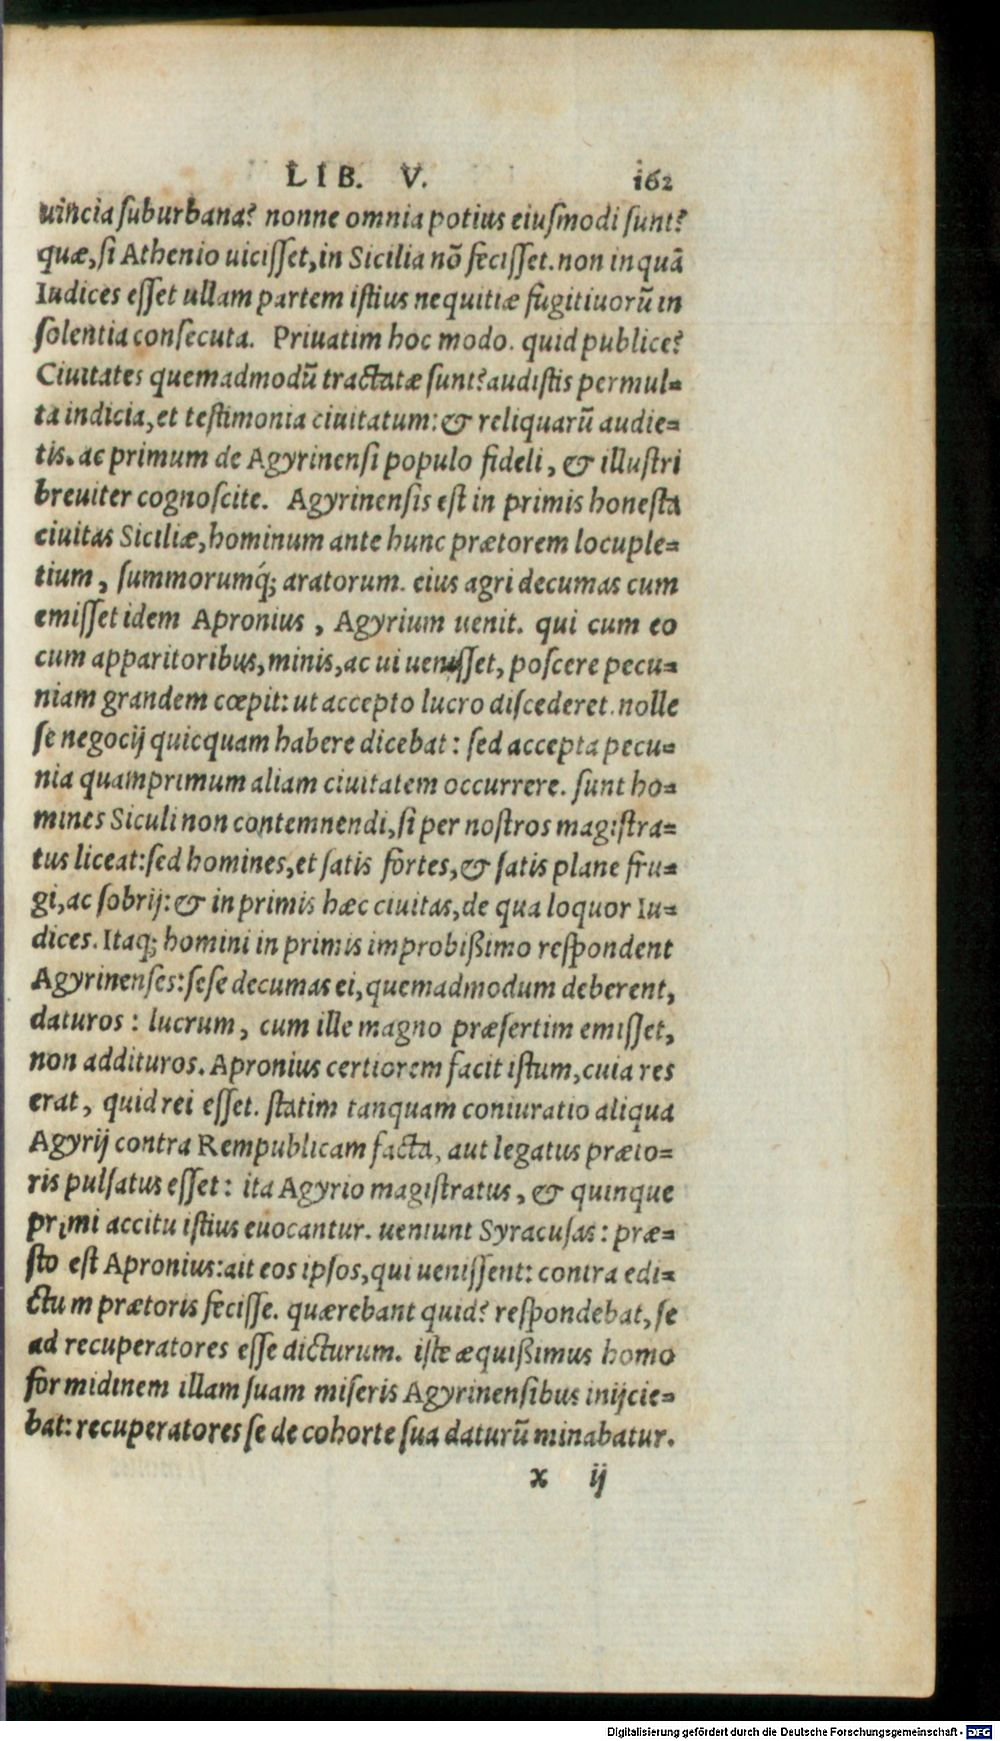 LIB. V. 162
uincia suburbana? nonne omnia potius eiusmodi sunt?
quæ, si Athenio uicisset, in Sicilia nõ fecisset. non inquã
Iudices esset ullam partem istius nequitiæ fugitiuorũ in
solentia consecuta. Priuatim hoc modo. quid publice?
Ciuitates quemadmodũ tractatæ sunt? audistis permul=
ta indicia, et testimonia ciuitatum: & reliquarũ audie=
tis. ac primum de Agyrinensi populo fideli, & illustri
breuiter cognoscite. Agyrinensis est in primis honesta
ciuitas Siciliæ, hominum ante hunc prætorem locuple=
tium, summorumq́; aratorum. eius agri decumas cum
emisset idem Apronius, Agyrium uenit. qui cum eo
cum apparitoribus, minis, ac ui uenisset, poscere pecu=
niam grandem cœpit: ut accepto lucro discederet. nolle
se negocij quicquam habere dicebat: sed accepta pecu=
nia quamprimum aliam ciuitatem occurrere. sunt ho=
mines Siculi non contemnendi, si per nostros magistra=
tus liceat: sed homines, et satis fortes, & satis plane fru=
gi, ac sobrij: & in primis hæc ciuitas, de qua loquor Iu=
dices. Itaq; homini in primis improbißimo respondent
Agyrinenses: sese decumas ei, quemadmodum deberent,
daturos: lucrum, cum ille magno præsertim emisset,
non addituros. Apronius certiorem facit istum, cuia res
erat, quid rei esset. statim tanquam coniuratio aliqua
Agyrij contra Rempublicam facta, aut legatus præto=
ris pulsatus esset: ita Agyrio magistratus, & quinque
primi accitu istius euocantur. ueniunt Syracusas: præ=
sto est Apronius: ait eos ipsos, qui uenissent: contra edi=
ctum prætoris fecisse. quærebant quid? respondebat, se
ad recuperatores esse dicturum. iste æquißimus homo
formidinem illam suam miseris Agyrinensibus inijcie=
bat: recuperatores se de cohorte sua daturũ minabatur.
x ij
Digitalisierung gefördert durch die Deutsche Forschungsgemeinschaft - DFG